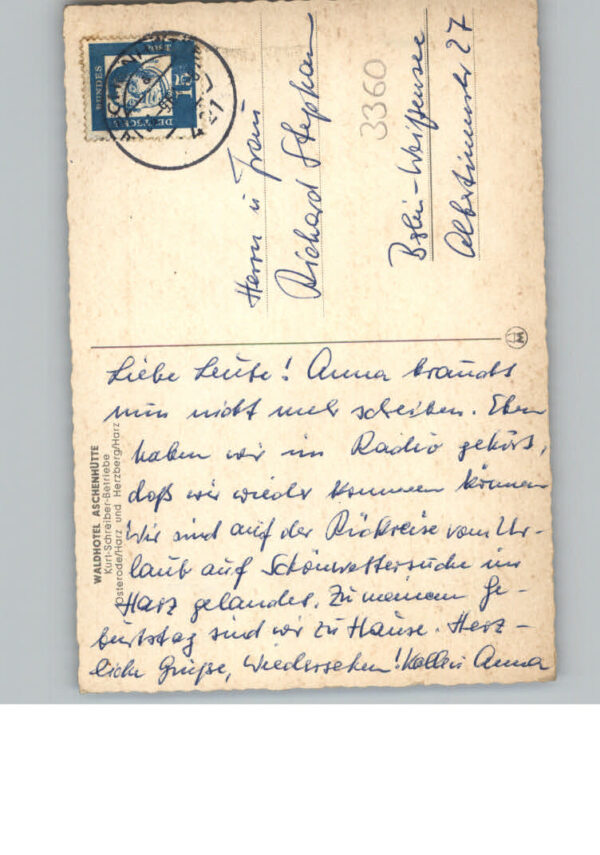 Liebe Leute! Anna braucht
nun nicht mehr schreiben. Eben
haben wir im Radio gehört,
daß wir wieder kommen können
Wir sind auf der Rückreise vom Ur-
laub auf Schönwettersuche im
Harz gelandet. Zu meinem Ge-
burtstag sind wir zu Hause. Herz-
liche Grüße, Wiedersehen! Anna
WALDHOTEL ASCHENHÜTTE
Kurt-Schreiber-Betriebe
Osterode/Harz und Herzberg/Harz
Herrn u Frau
Richard Stephan
3360
Berlin-Weißensee
Albertinenstr 27
DEUTSCHE
BUNDES
15